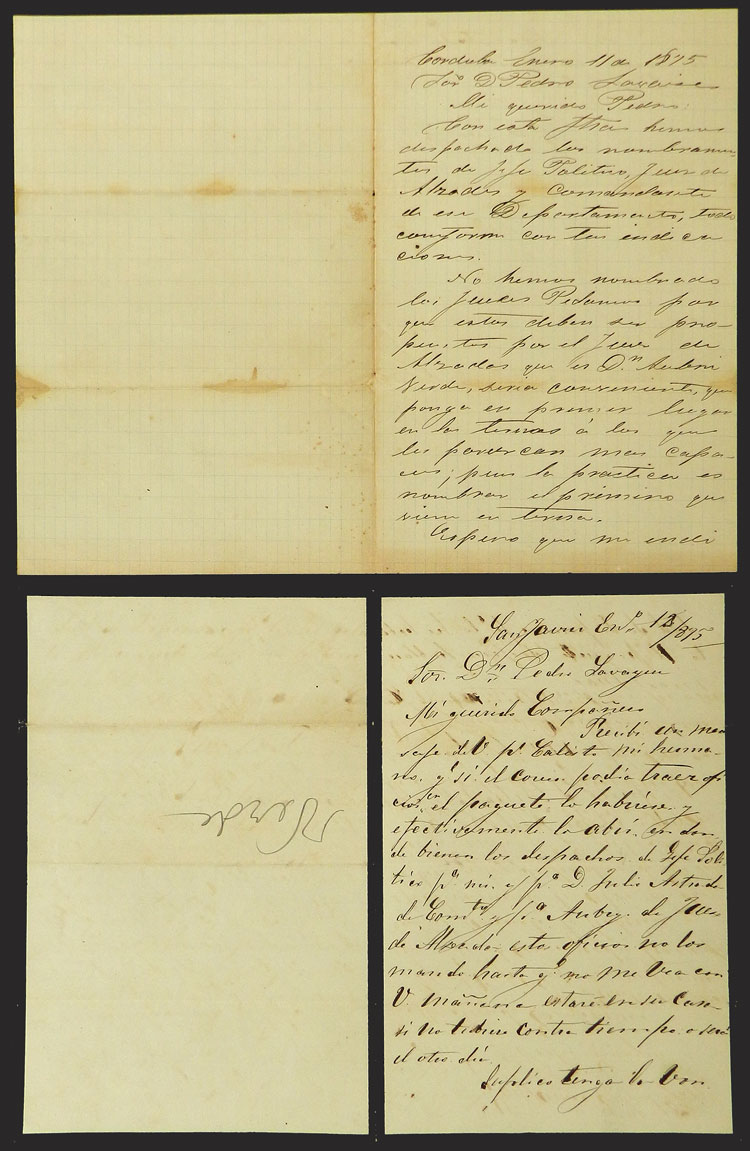 Cordoba Enero 11 de 1875
Sor D Pedro
Mi querido Pedro:
Con esta fha hemos
despachado los nombramien-
tos de Jefe Politico, Juez de
Alzadas y Comandante
de ese Departamento, todo
conforme con tus indica
ciones.
No hemos nombrado
los Jueces Pedaneos por
que estos deben ser pro-
puestos por el Juez de
Alzadas que es Dn
Verde, seria conveniente, que
ponga en primer lugar
en las ternas á los que
les parezcan mas capa-
ces; pues la práctica es
nombrar el primero que
viene en terna.
Espero que me indi
San Javier En.º 13/875
Sor. Dn. Pedro
Mi querido Compañero
Recibí un men
saje de V pr Calisto mi herma-
no, q.e si el correo podia traer ofi
cios en el paquete lo habriese y
efectivamente lo abrí, en don
de bienen los despachos de Jefe Poli
tico pa. mi, y pa. D. Julio Astrada
de Comte y pa. de Juez
de Alzada estos oficios no los
mando hasta q.e no me vea con
V. mañana estaré en su casa
si no tubiere contra tiempo o será
el otro dia.
Suplico tenga la
Verde